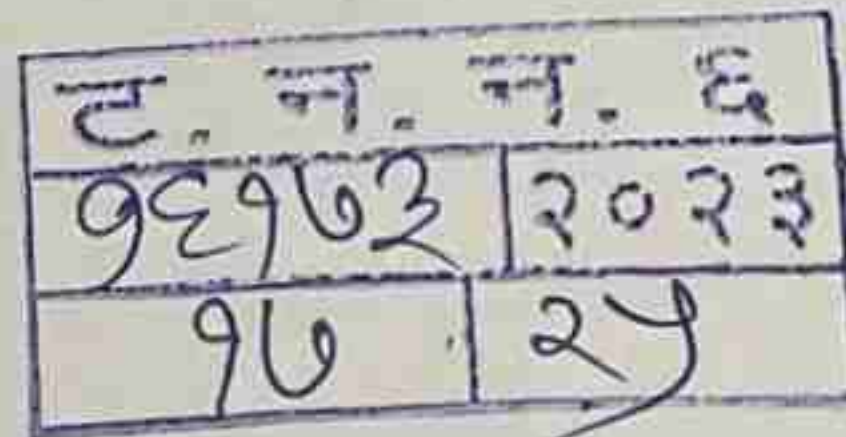 ट. न. न. ६
१६१७३ २०२३
१७ २५